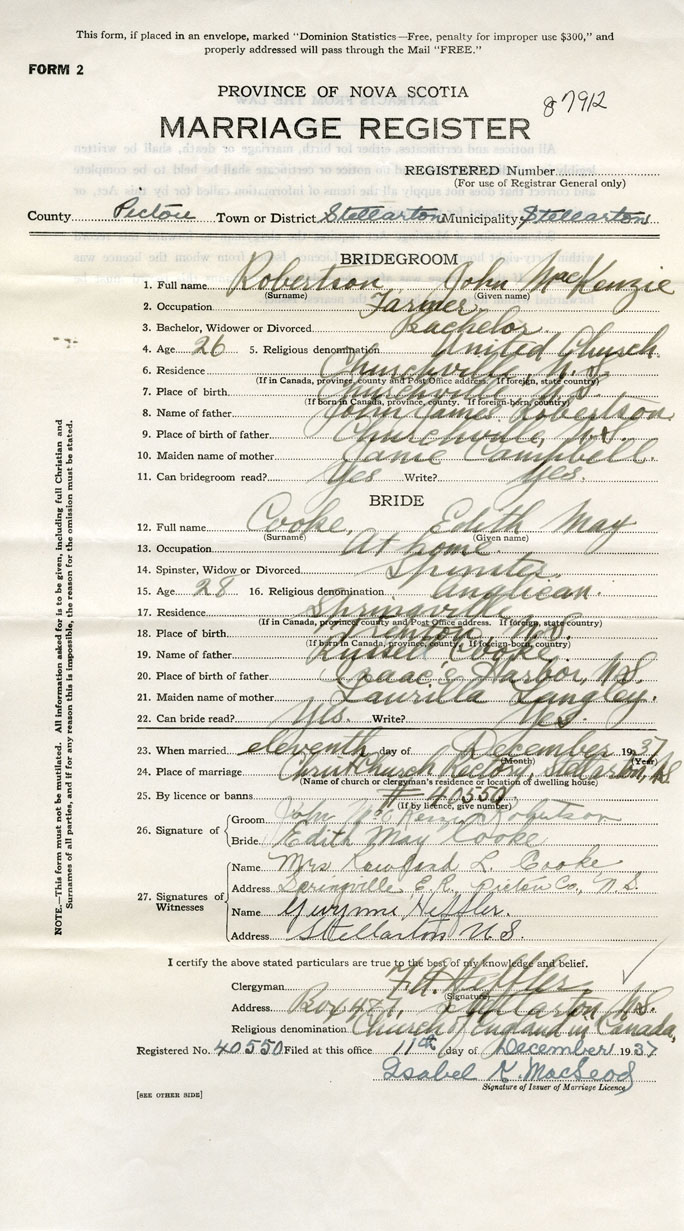 This form, if placed in an envelope, marked "Dominion Statistics—Free, penalty for improper use $300," and
properly addressed will pass through the Mail "FREE."
FORM 2
PROVINCE OF NOVA SCOTIA
87912
MARRIAGE REGISTER
REGISTERED Number
(For use of Registrar General only)
County Pictou Town or District Stellarton Municipality Stellarton
BRIDEGROOM
1. Full name Robertson John MacKenzie
(Surname) (Given name)
2. Occupation Farmer
3. Bachelor, Widower or Divorced Bachelor
4. Age 26 5. Religious denomination United Church
6. Residence Churchville, N.S.
(If in Canada, province, county and Post Office address. If foreign, state country)
7. Place of birth Churchville, N.S.
(If born in Canada, province, county. If foreign-born, country)
8. Name of father John James Robertson
9. Place of birth of father Churchville, N.S.
10. Maiden name of mother Janie Campbell
11. Can bridegroom read? Yes Write? Yes.
BRIDE
12. Full name Cooke, Edith May
(Surname) (Given name)
13. Occupation At home
14. Spinster, Widow or Divorced Spinster.
15. Age 28 16. Religious denomination Anglican.
17. Residence Springville
(If in Canada, province, county and Post Office address. If foreign, state country)
18. Place of birth N.S.
(If born in Canada, province, county. If foreign-born, country)
19. Name of father Russell Cooke
20. Place of birth of father Isaac's Harbor, N.S.
21. Maiden name of mother Laurilla Langley.
22. Can bride read? Yes. Write? Yes.
23. When married eleventh day of December 1937
(Month) (Year)
24. Place of marriage Christ Church Rectory, Stellarton, N.S
(Name of church or clergyman's residence or location of dwelling house)
25. By licence or banns # 40550
(If by licence, give number)
26. Signature of Groom John MacKenzie Robertson
Bride Edith May Cooke
27. Signatures of Witnesses Name Mrs L. Cooke
Address Springville E.R., Pictou Co., N.S.
Name Heffler.
Address Stellarton N.S.
I certify the above stated particulars are true to the best of my knowledge and belief.
Clergyman Heffler
(Signature)
Address Box 427, Stellarton, N.S.
Religious denomination Church of England in Canada,
Registered No. 40550 Filed at this office 11th day of December 1937
Isabel K. MacLeod
Signature of Issuer of Marriage Licence
[SEE OTHER SIDE]
NOTE.—This form must not be mutilated. All information asked for is to be given, including full Christian and
Surnames of all parties, and if for any reason this is impossible, the reason for the omission must be stated.